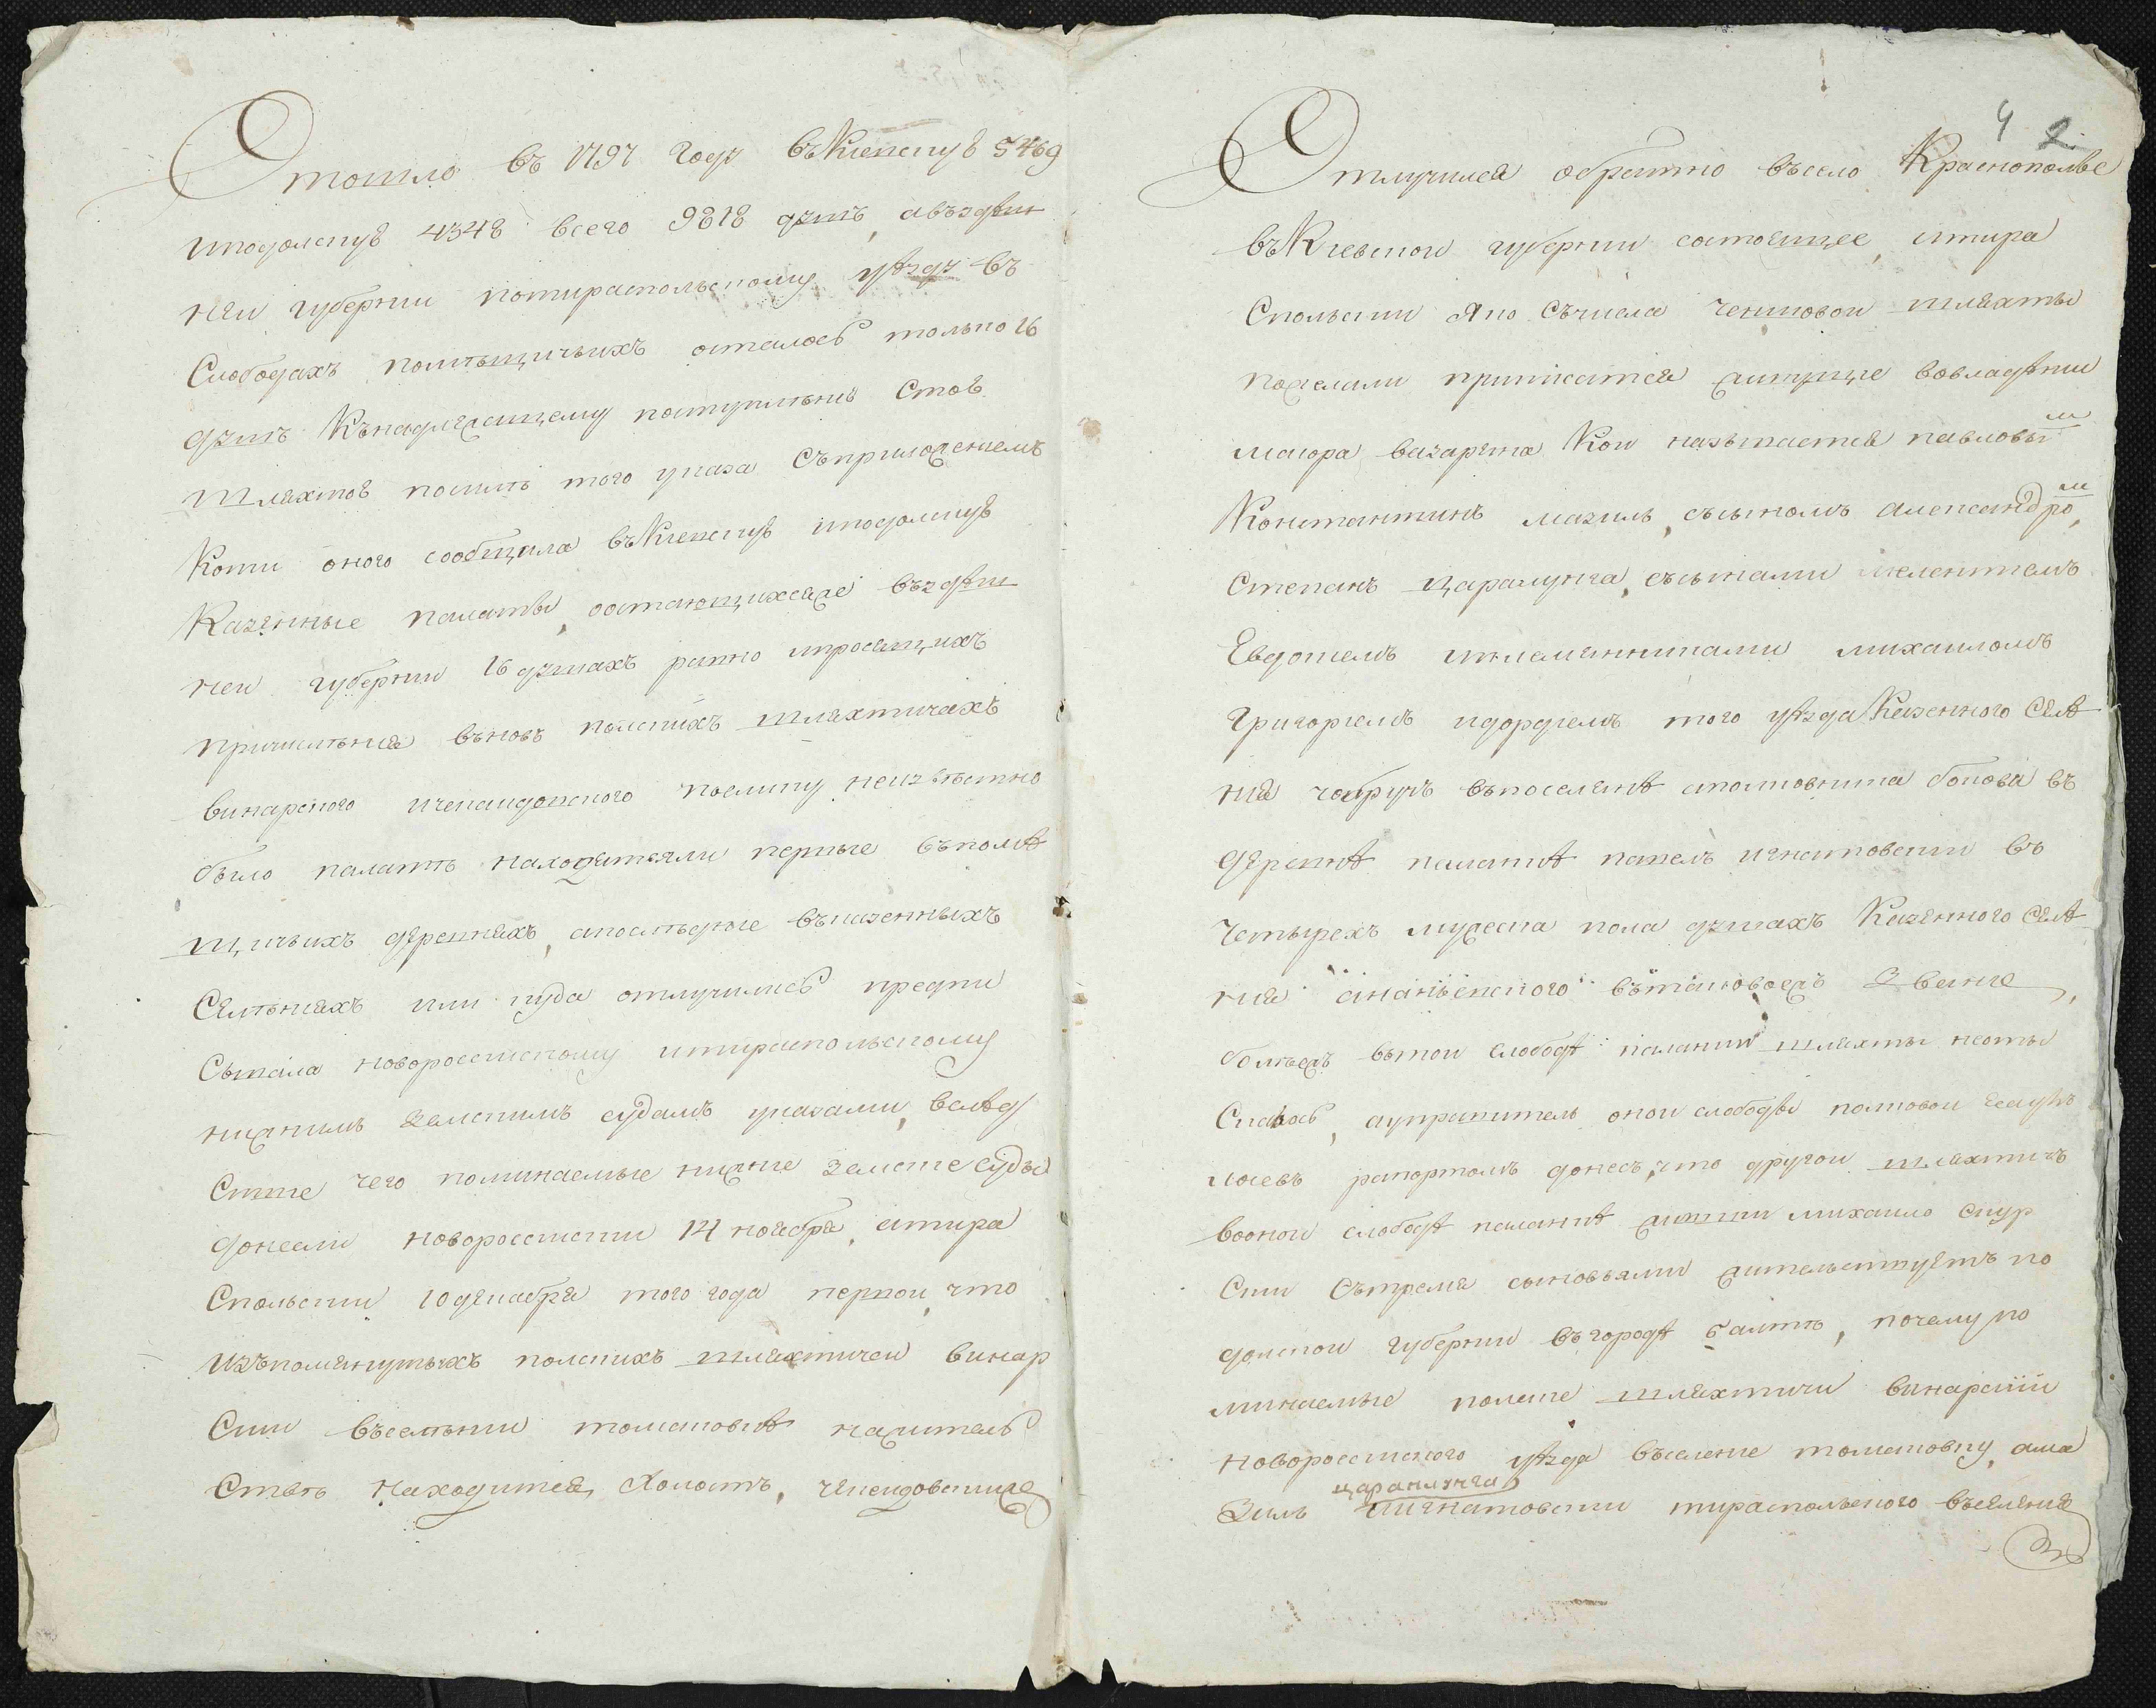 Отошло въ 1797 году въ Киевскую 5469
иподолскую 4348 всего 9818 душъ, авъздѣш
неи губернии потираспольскому уѣзду въ
Слободахъ помѣщичьихъ осталось только 16
душъ Кънадлежащему поступлению Стов
Шляхтов посилѣ того указа Съприложениемъ
Копи оного сообщила въКиевскую иподолскую
Казенные палаты, оостающихсяже въздѣш
неи губернии 16 душахъ равно ипросящихъ
причисления въновь полскихъ шляхтичахъ
винарского ичекаидовского поелику неизвѣстно
было палатѣ находятсяли первые въпомѣ
щичьихъ деревняхъ, апослѣдние въказенныхъ
Селенияхъ или куда отлучились предпи
Сывала новороссийскому итираспольскому
нижнимъ Земскимъ судамъ указами, вслѣд
Ствие чего поминаемые нижние Земские суды
донесли новороссийский 14 ноября, атира
Спольский 10 декабря того года первой, что
изъпомянутыхъ полскихъ шляхтичей винар
Ский въселении томаковке нажитель
Ствѣ находится, Холостъ, чекеидовскийже
4 2
Отлучился обратно въсело Краснополье
въКиевской губернии состоящее, атира
Спольский Яко Съчисла чиншовой шляхты
пожелали приписатся живущие вовладѣнии
маиора вазаряна Кои называется павловым
Константинъ мазиль, съсыномъ александром,
Степанъ Царалунга, съсынами мелентиемъ
Евдотиемъ иплемянниками михаиломъ
Григориемъ идордиемъ того уѣзда Казенного Селе
ния чобручъ въпоселянѣ аполковника бокова въ
деревнѣ паланке павелъ игнатовский въ
Четырехъ мужеска пола душахъ Казенного Селе
ния ананьевского вътаковоежъ Звание,
болѣежъ втой слободѣ паланки шляхты неоты
Скалось, ауправитель оной слободы полковой есаулъ
лоевъ рапортомъ донесъ, что другой шляхтичъ
воонои слободѣ паланке жившии михаило Скур
Ский Сътремя сыновьями жительствуетъ по
долской губернии въгородѣ балтѣ, почему по
минаемые полские шляхтичи винарский
новороссийского уѣзда въселение томаковку, ама
царалунга
Зиль иигнатовский тираспольского въселения